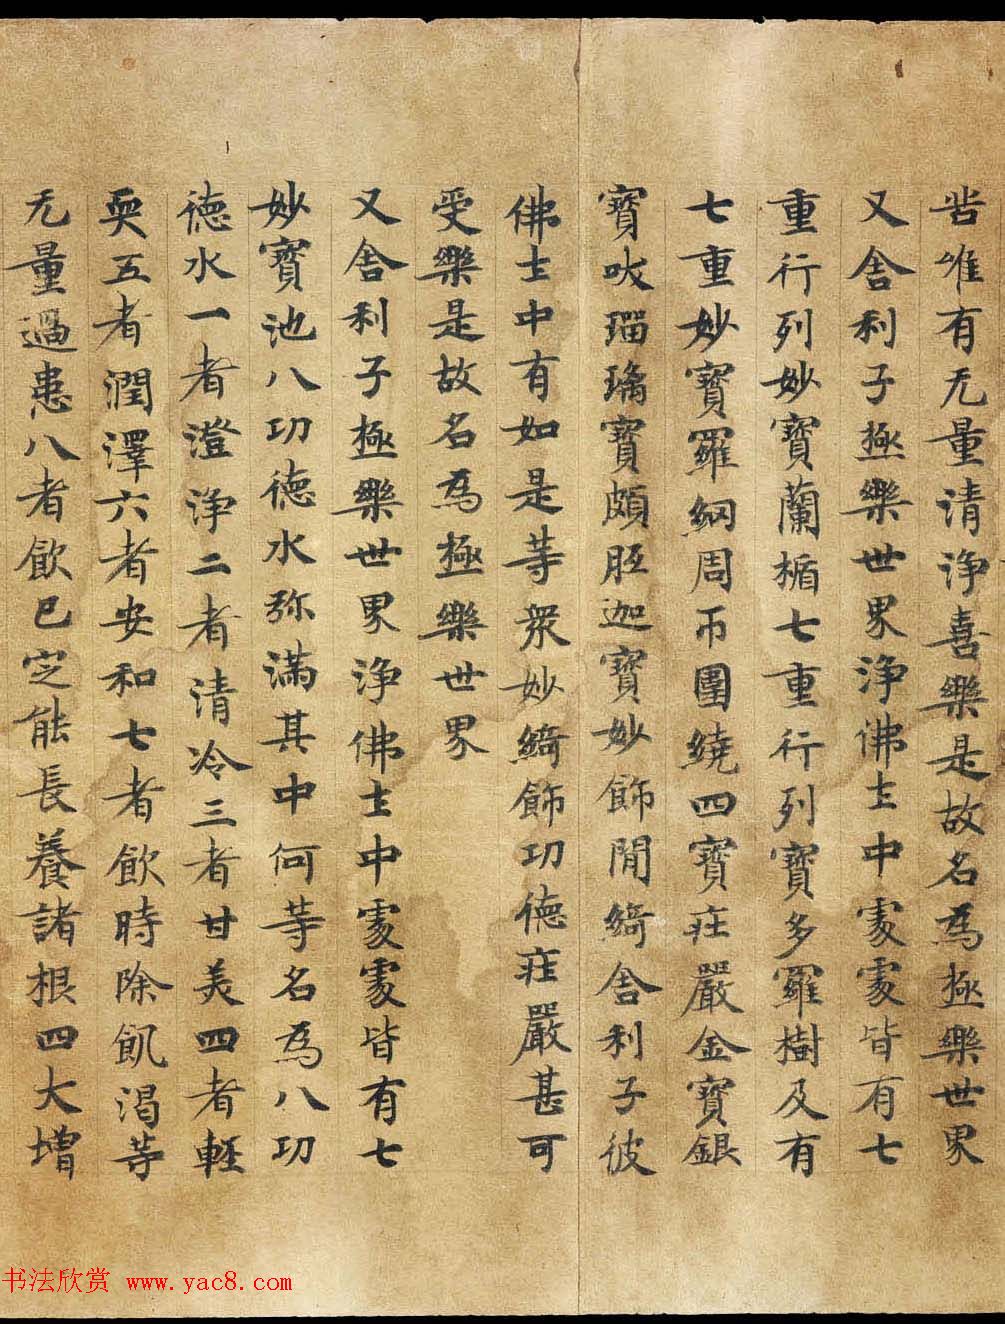 苦唯有无量清淨喜樂是故名為極樂世界
又舍利子極樂世界淨佛土中處處皆有七
重行列妙寶蘭楯七重行列寶多羅樹及有
七重妙寶羅網周帀圍繞四寶莊嚴金寶銀
寶吠瑠璃寶頗胝迦寶妙飾閒綺舍利子彼
佛土中有如是等衆妙綺飾功德莊嚴甚可
受樂是故名為極樂世界
又舍利子極樂世界淨佛土中處處皆有七
妙寶池八功德水弥滿其中何等名為八功
德水一者澄淨二者清冷三者甘美四者輕
耎五者潤澤六者安和七者飲時除飢渴等
无量過患八者飲已定能長養諸根四大增
书法欣赏 www.yac8.com